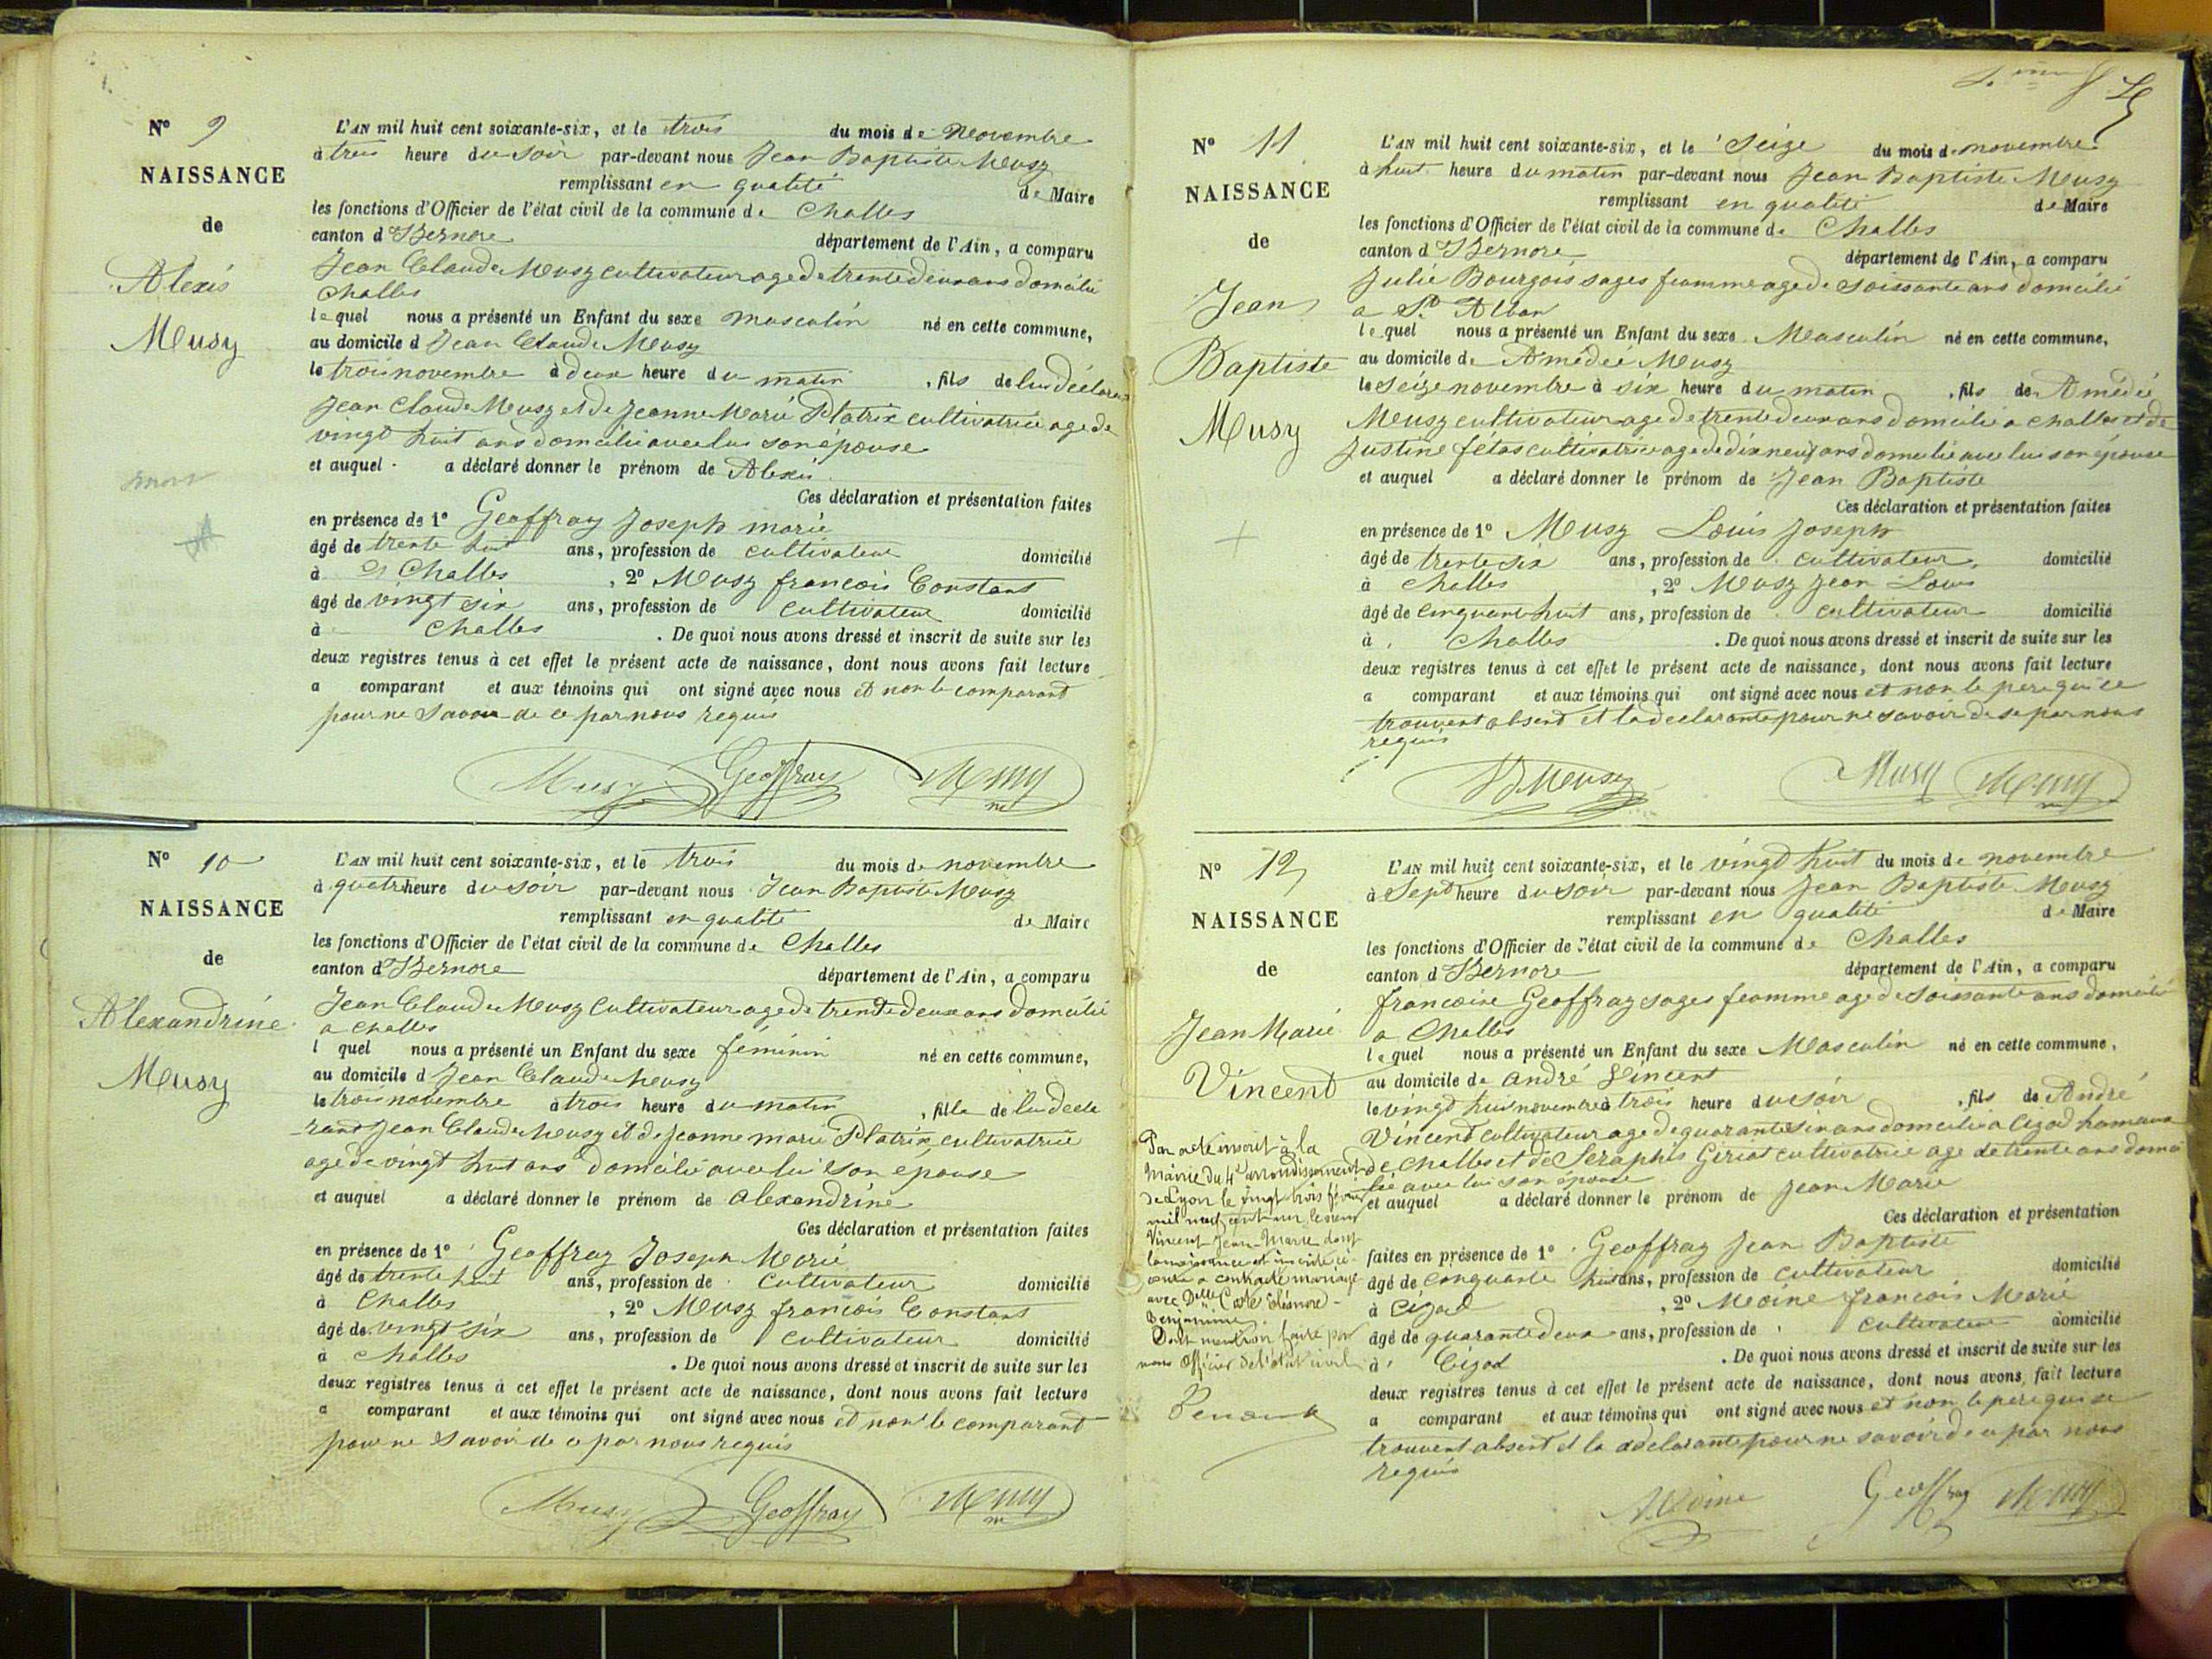 Nº 9
NAISSANCE
de
Alexis
Musy
L'AN mil huit cent soixante-six, et le trois du mois de Novembre
à trois heure du soir par-devant nous Jean Baptiste Musy
remplissant en qualité de Maire
les fonctions d'Officier de l'état civil de la commune de Challes
canton d Izernore département de l'Ain, a comparu
Jean Claude Musy cultivateur age de trente deux ans domicilié
Challes
lequel nous a présenté un Enfant du sexe masculin né en cette commune,
au domicile d Jean Claude Musy
le trois novembre à deux heure du matin , fils de lui déclarant
Jean Claude Musy et de Jeanne Marie Platrix cultivatrice age de
vingt huit ans domicilié avec lui son épouse
et auquel a déclaré donner le prénom de Alexis
Ces déclaration et présentation faites
en présence de 1º Geoffray Joseph marie
âgé de trente huit ans, profession de cultivateur domicilié
à Challes , 2º Musy francois Constant
âgé de vingt six ans, profession de cultivateur domicilié
à Challes . De quoi nous avons dressé et inscrit de suite sur les
deux registres tenus à cet effet le présent acte de naissance, dont nous avons fait lecture
a comparant et aux témoins qui ont signé avec nous et non le comparant
pour ne savoir de ce par nous requis
Musy Geoffray Musy
Nº 10
NAISSANCE
de
Alexandrine
Musy
L'AN mil huit cent soixante-six, et le trois du mois de novembre
à quatre heure du soir par-devant nous Jean Baptiste Musy
remplissant en qualité de Maire
les fonctions d'Officier de l'état civil de la commune de Challes
canton d Izernore département de l'Ain, a comparu
Jean Claude Musy Cultivateur age de trente deux ans domicilié
a Challes
l quel nous a présenté un Enfant du sexe féminin né en cette commune,
au domicile d Jean Claude Musy
le trois novembre à trois heure du matin , fille de lui décla
rant Jean Claude Musy et de Jeanne marie Platrix, cultivatrice
age de vingt huit ans domicilié avec lui son épouse
et auquel a déclaré donner le prénom de alexandrine
Ces déclaration et présentation faites
en présence de 1º Geoffray Joseph Marie
âgé de trente huit ans, profession de Cultivateur domicilié
à Challes , 2º Musy francois Constant
âgé de vingt six ans, profession de cultivateur domicilié
à Challes . De quoi nous avons dressé et inscrit de suite sur les
deux registres tenus à cet effet le présent acte de naissance, dont nous avons fait lecture
a comparant et aux témoins qui ont signé avec nous et non le comparant
pour ne savoir de ce par nous requis
Musy Geoffray Musy
Nº 11
NAISSANCE
de
Jean
Baptiste
Musy
L'AN mil huit cent soixante-six, et le Seize du mois de novembre
à huit heure du matin par-devant nous Jean Baptiste Musy
remplissant en qualité de Maire
les fonctions d'Officier de l'état civil de la commune de Challes
canton d Izernore département de l'Ain, a comparu
Julie Bourgois sages feamme age de soissante ans domicilié
a St Alban
lequel nous a présenté un Enfant du sexe Masculin né en cette commune,
au domicile de Amédee Musy
le Seize novembre à six heure du matin , fils de Amédée
Musy cultivateur age de trente deux ans domicilié a challes et de
Justine fétas cultivatrice age de dix neuf ans domicilié avec lui son épouse
et auquel a déclaré donner le prénom de Jean Baptiste
Ces déclaration et présentation faites
en présence de 1º Musy Louis Joseph
âgé de trente six ans, profession de cultivateur domicilié
à Challes , 2º Musy Jean Louis
âgé de cinquante huit ans, profession de cultivateur domicilié
à Challes . De quoi nous avons dressé et inscrit de suite sur les
deux registres tenus à cet effet le présent acte de naissance, dont nous avons fait lecture
a comparant et aux témoins qui ont signé avec nous et non le pere qui ce
trouvent absent et la declarante pour ne savoir de se par nous
requis
Musy Musy Musy
Nº 12
NAISSANCE
de
Jean Marie
Vincent
L'AN mil huit cent soixante-six, et le vingt huit du mois de novembre
à Sept heure du soir par-devant nous Jean Baptiste Musy
remplissant en qualité de Maire
les fonctions d'Officier de l'état civil de la commune de Challes
canton d Izernore département de l'Ain, a comparu
francoise Geoffray sages feamme age de soissante ans domicilié
a Challes
lequel nous a présenté un Enfant du sexe Masculin né en cette commune,
au domicile de andré Vincent
le vingt huit novembre à trois heure du soir , fils de André
Vincent cultivateur age de quarante six ans domicilié a Cigod hameau
de Challes et de Séraphis Geriat cultivatrice age de trente ans domi
lié avec lui son épouse
et auquel a déclaré donner le prénom de Jean Marie
Ces déclaration et présentation
faites en présence de 1º Geoffray Jean Baptiste
âgé de cinquante huit ans, profession de cultivateur domicilié
à Cigod , 2º Moine francois Marie
âgé de quarante deux ans, profession de cultivateur domicilié
à Cigod . De quoi nous avons dressé et inscrit de suite sur les
deux registres tenus à cet effet le présent acte de naissance, dont nous avons fait lecture
a comparant et aux témoins qui ont signé avec nous et non le pere qui se
trouvent absent et la déclarante pour ne savoir de ce par nous
requis
Moine Geoffray Musy
Par acte inscrit à la
Mairie du 4e arrondissement
de Lyon le vingt trois février
mil neuf cent un, le sieur
Vincent Jean-Marie dont
la naissance est inscrite ci-
contre a contracté mariage
avec Delle Coste Eléonore-
Benjamine.
Dont mention faite par
nous Officier de l'état civil